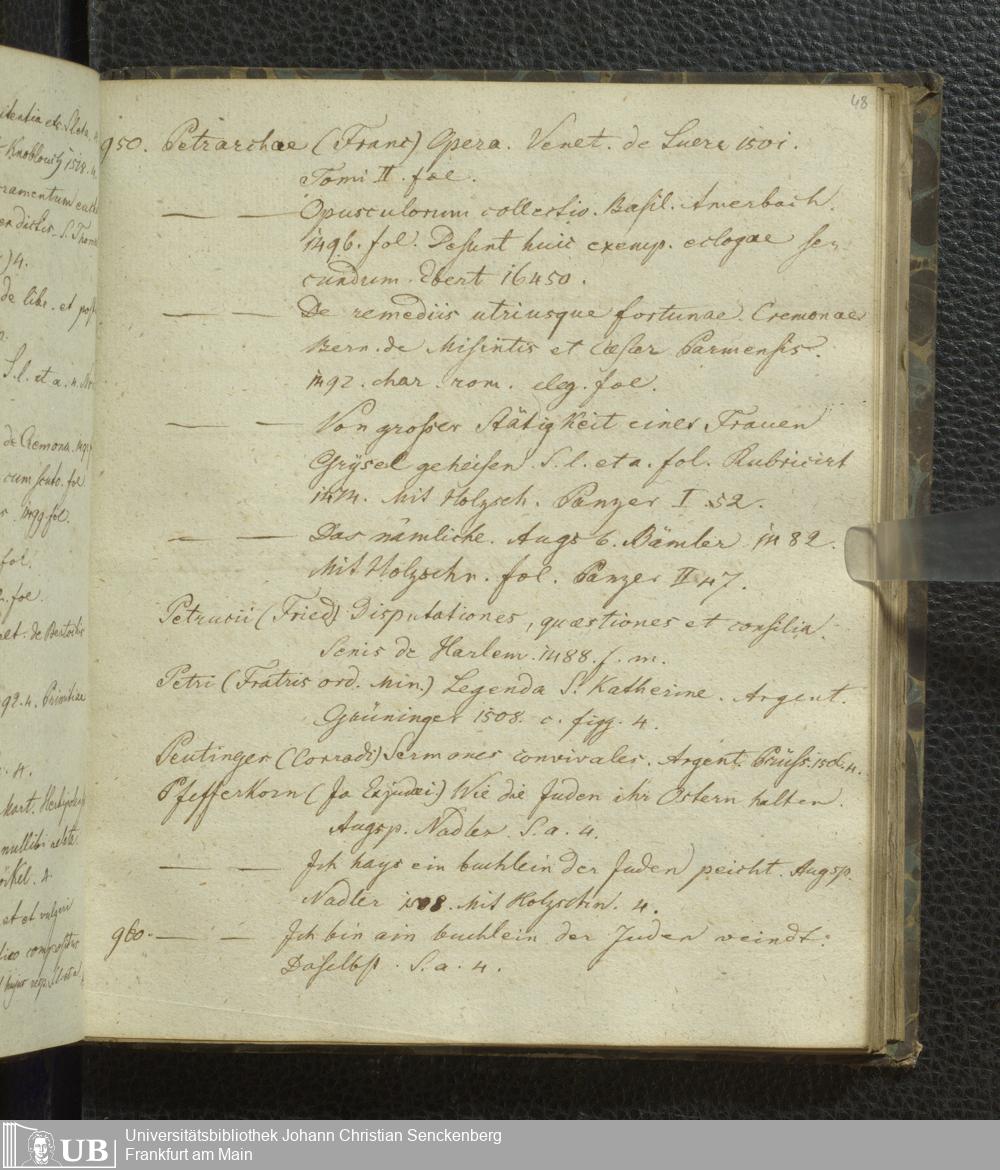 48
950. Petrarchae (Franc) Opera. Venet. de Luere 1501.
Tomi II. fol.
— — Opusculorum collectio. Basil. Amerbach.
1496. fol. Desunt huic exemp. eclogae se-
cundum Ebert 16450.
— — De remediis utriusque fortunae. Cremonae
Bern. de Misintis et Cæsar Parmensis.
1492. char. rom. eleg. fol.
— — Von grosser Stätigkeit einer Frauen
Grysel geheisen. S. l. et a. fol. Rubricirt
1474. Mit Holzsch. Panzer I 52.
— — Das nämliche. Augs b. Bämler 1482.
Mit Holzschn. fol. Panzer II 47.
(Fried) Disputationes, quæstiones et consilia.
Senis de Harlem. 1488. f. m.
Petri (Fratris ord. Min.) Legenda S. Katherine. Argent.
Grüninger 1508. c. figg. 4.
Peutinger (Conradi) Sermones convivales. Argent. Prüss. 4.
Pfefferkorn (Jo Exjudæi) Wie die Juden ihr Ostern halten.
Augsp. Nadler. S. a. 4.
— — Ich hays ein buchlein der Juden peicht. Augsp.
Nadler 1508. Mit Holzschn. 4.
960. — — Ich bin ain buchlein der Juden veindt.
Daselbst. S. a. 4.
UB
Universitätsbibliothek Johann Christian Senckenberg
Frankfurt am Main